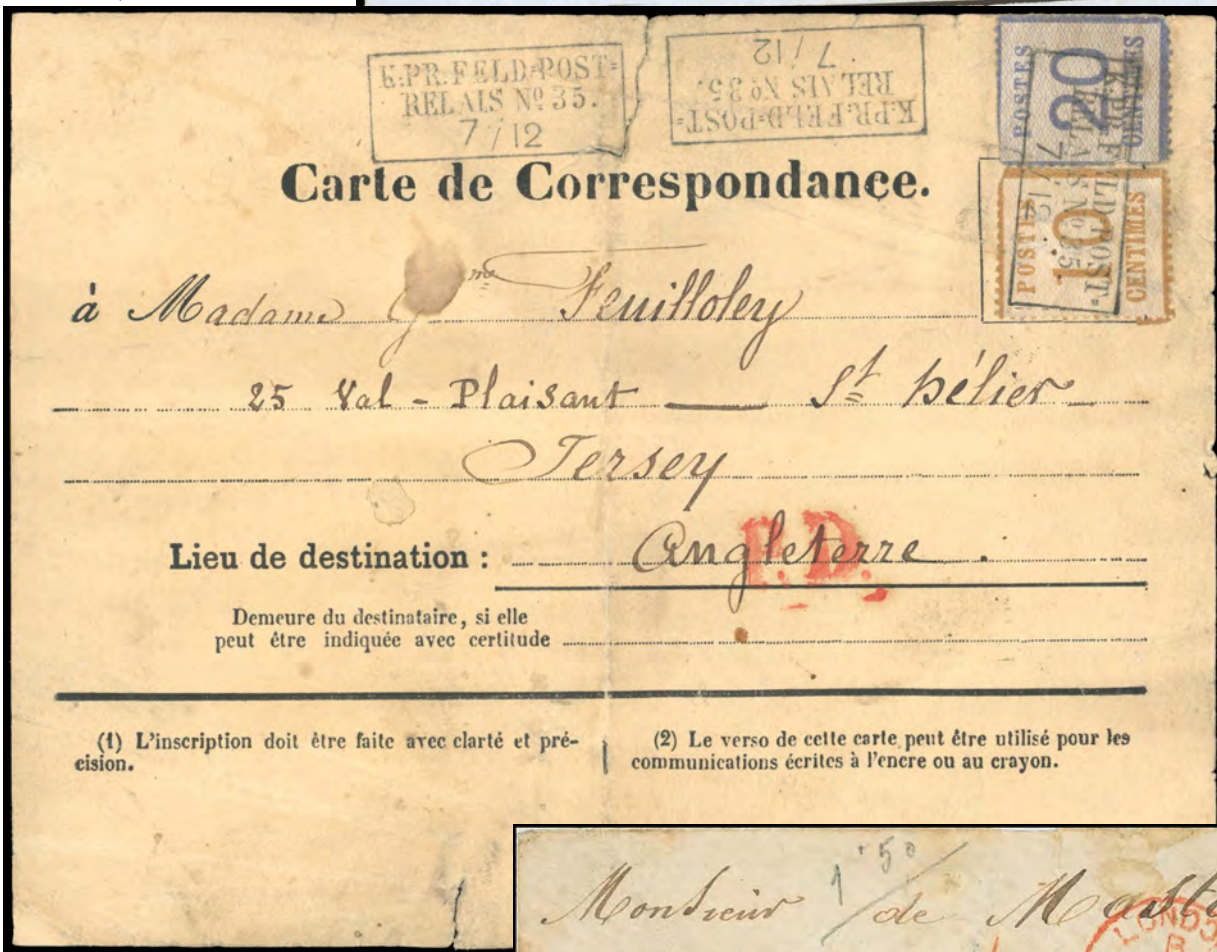 K.PR.FELD-POST-
RELAIS Nº 35.
7/12
K.PR.FELD-POST-
RELAIS Nº 35.
7/12
POSTES
20
CENTIMES
K.PR.FELD-POST-
RELAIS Nº 35.
7/12
POSTES
10
CENTIMES
Carte de Correspondance.
à Madame Feuilloley
25 Val - Plaisant — St hélier
Jersey
P.D.
Lieu de destination : Angleterre.
Demeure du destinataire, si elle
peut être indiquée avec certitude
(1) L'inscription doit être faite avec clarté et pré-
cision.
(2) Le verso de cette carte peut être utilisé pour les
communications écrites à l'encre ou au crayon.
1.50
Monsieur de